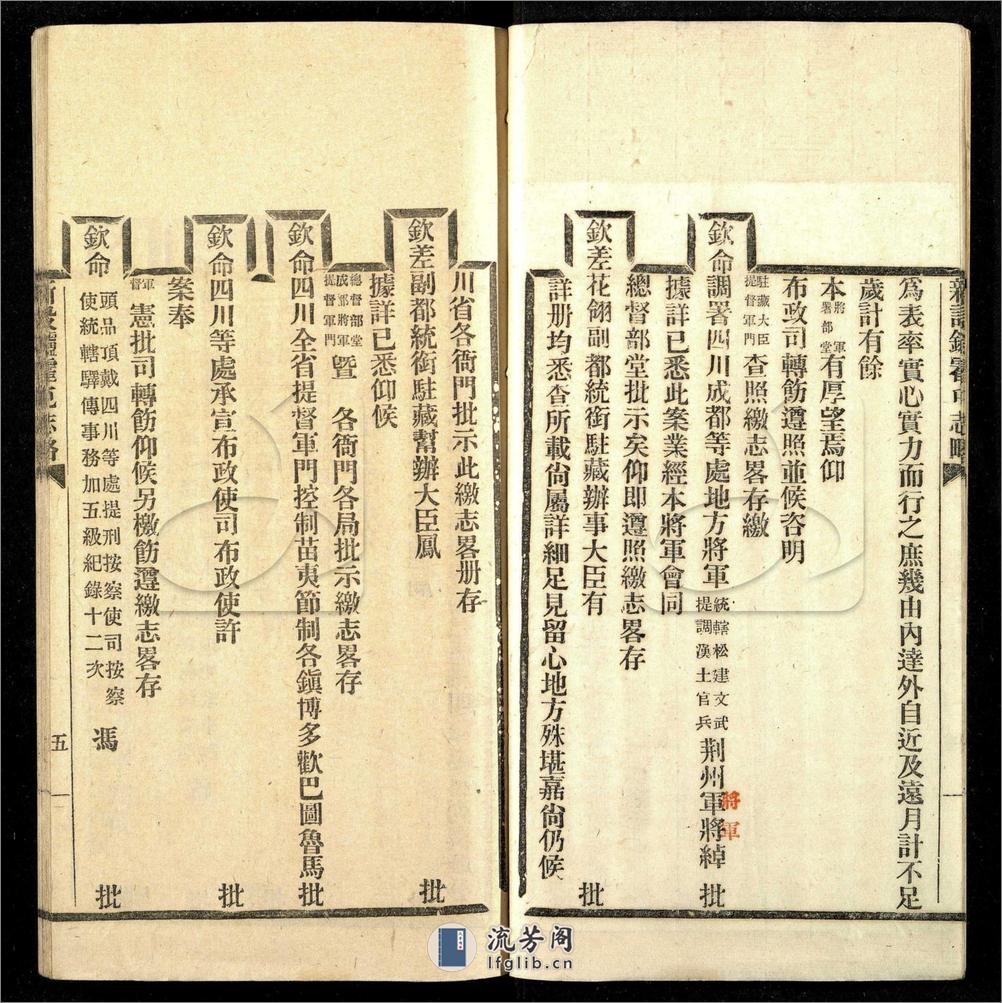 爲表率實心實力而行之庶幾由內達外自近及遠月計不足
歲計有餘
本將軍署部堂有厚望焉仰
布政司轉飭遵照並候咨明
駐藏大臣提督軍門查照繳志畧存繳
欽命調署四川成都等處地方將軍統轄松建文武提調漢土官兵荆州軍將綽 批
將軍
據詳已悉此案業經本將軍會同
總督部堂批示矣仰卽遵照繳志畧存
欽差花翎副都統銜駐藏辦事大臣有 批
詳册均悉查所載尙屬詳細足見留心地方殊堪嘉尙仍候
川省各衙門批示此繳志畧册存
欽差副都統銜駐藏幫辦大臣鳳 批
據詳已悉仰候
總督部堂成都將軍提督軍門曁 各衙門各局批示繳志畧存
欽命四川全省提督軍門控制苗夷節制各鎭博多歡巴圖魯馬 批
欽命四川等處承宣布政使司布政使許 批
案奉
軍督憲批司轉飭仰候另檄飭遵繳志畧存
欽命頭品頂戴四川等處提刑按察使司按察使統轄驛傳事務加五級紀錄十二次 馮 批
五
流芳阁
lfglib.cn